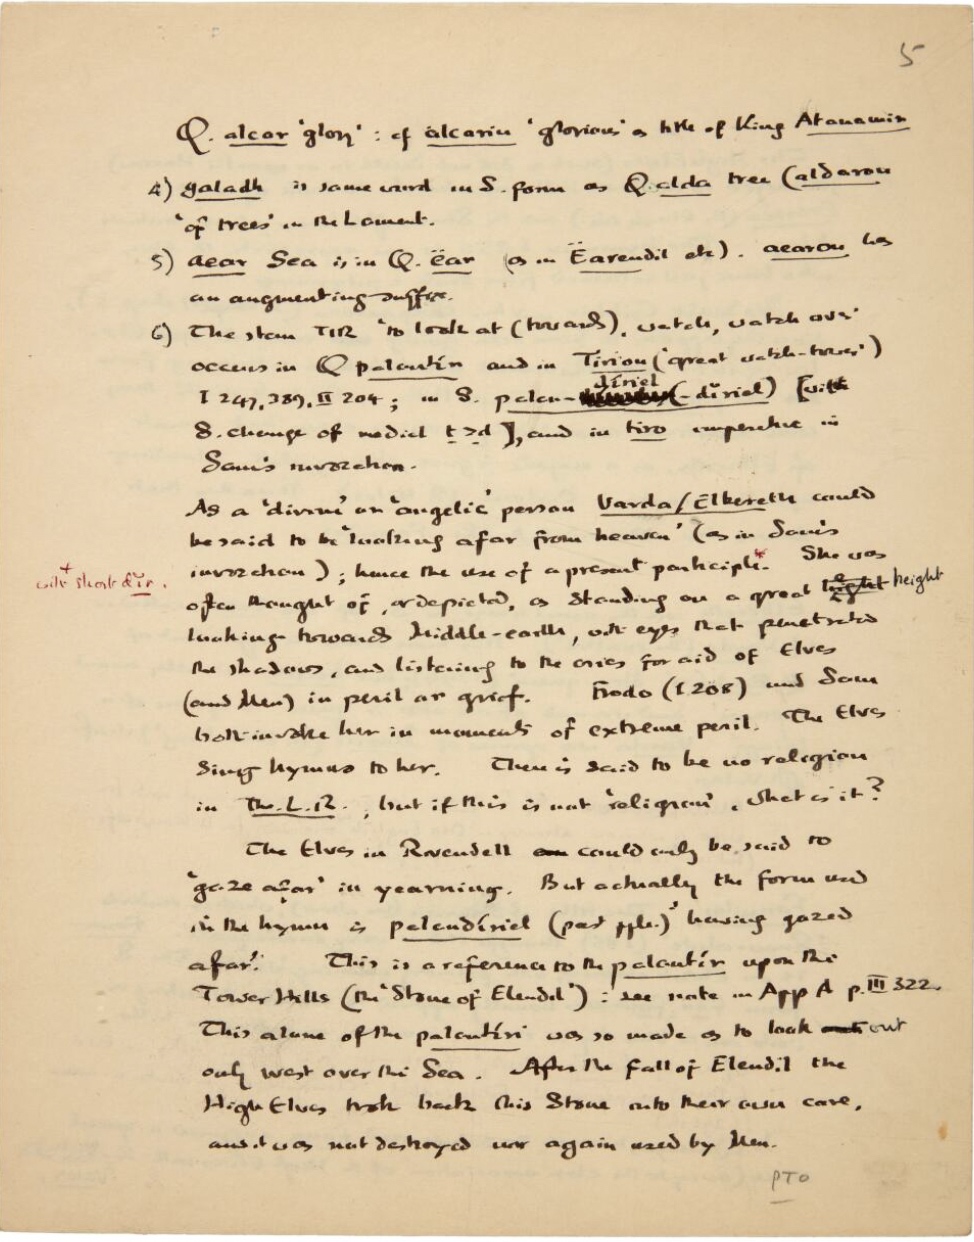 5
Q. alcar 'glory' : cf alcarin 'glorious' as title of King Atanamir
4) galadh is same word in S. form as Q. alda tree (aldaron
'of trees' in the Lament.
5) aear Sea is in Q. ëar (as in Ëarendil etc). aearon has
an augmenting suffix.
6) The stem TIR 'to look at (towards), watch, watch over'
occurs in Q palantír and in Tirion ('great watch-tower')
díriel
I 247, 389, II 204 ; in S. palan- (-dĭriel) [with
S. change of medial t > d ], and in tiro imperative in
Sam's invocation.
As a 'divine' or 'angelic' person Varda/Elbereth could
be said to be 'looking afar from heaven' (as in Sam's
invocation) ; hence the use of a present participle.+ She was
+ with short dĭr.
often thought of, or depicted, as standing on a great height
looking towards Middle-earth, with eyes that penetrated
the shadows, and listening to the cries for aid of Elves
(and Men) in peril or grief. Frodo (I 208) and Sam
both invoke her in moments of extreme peril. The Elves
sing hymns to her. There is said to be no religion
in The L.R. , but if this is not 'religion', what is it?
The Elves in Rivendell could only be said to
'gaze afar' in yearning. But actually the form used
in the hymn is palandíriel (past pple.) 'having gazed
afar'. This is a reference to the palantír upon the
Tower Hills (the 'Stone of Elendil') : see note in App A p. III 322.
This alone of the palantíri was so made as to look out
only west over the Sea. After the fall of Elendil the
High Elves took back this Stone into their own care,
and it was not destroyed nor again used by Men.
PTO